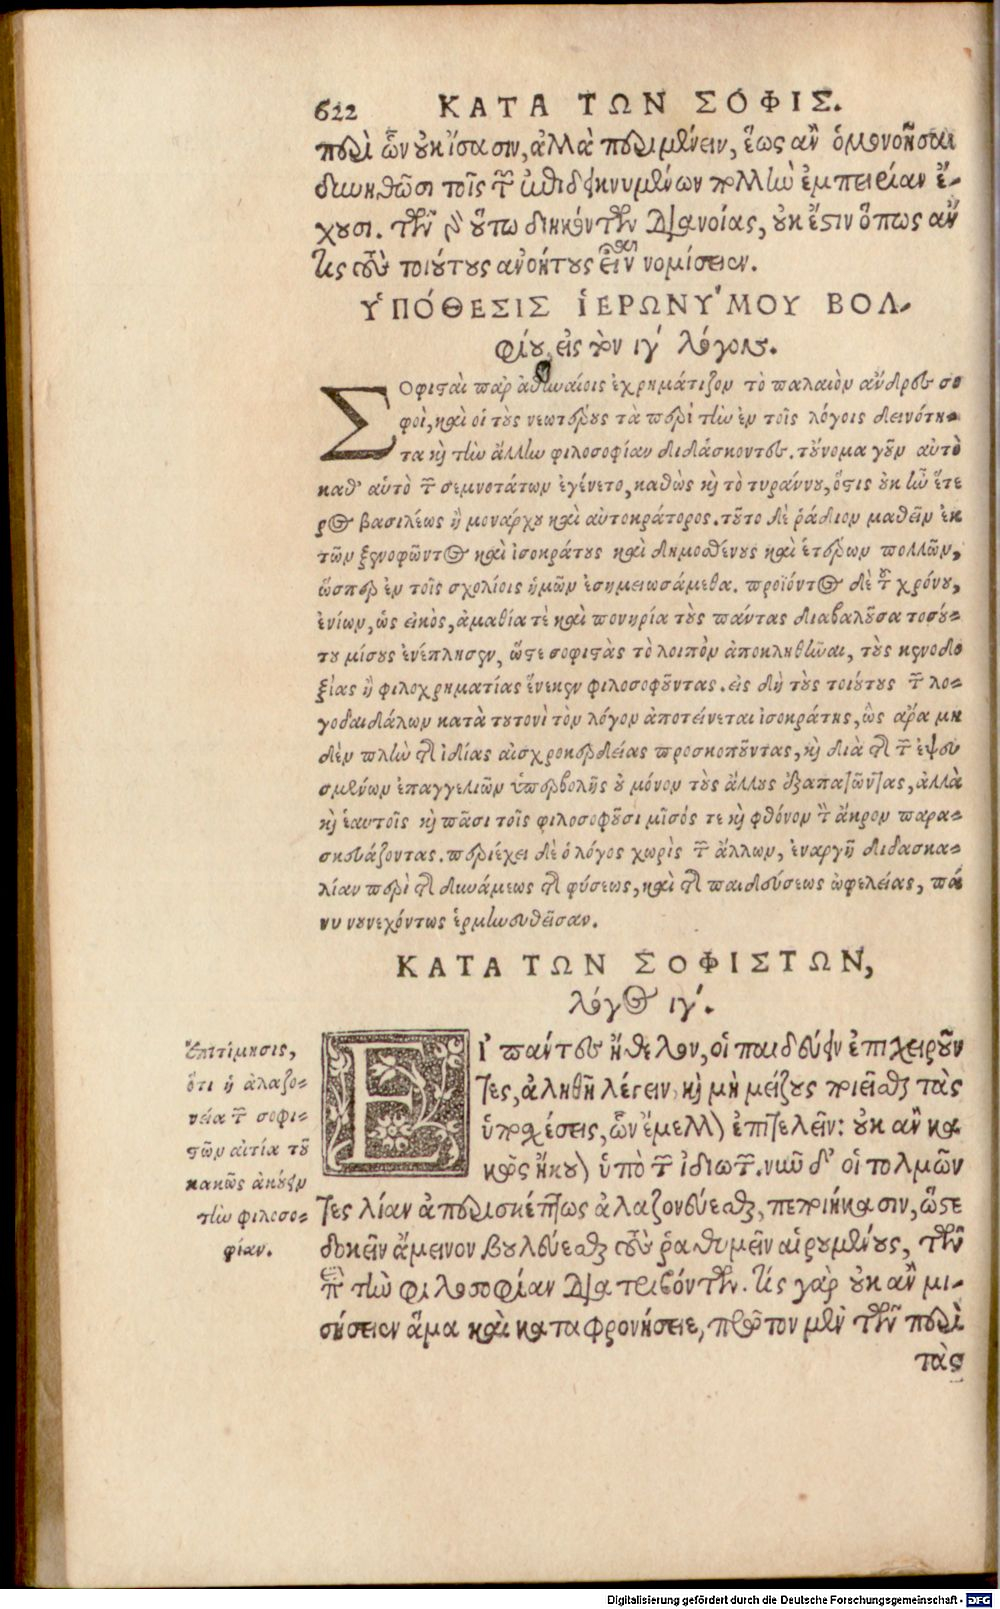 622 ΚΑΤΑ ΤΩΝ ΣΟΦΙΣ.
περὶ ὧν οὐκ ἴσασιν, ἀλλὰ περιμένειν, ἕως ἂν ὁμονοῆσαι
δυνηθῶσι τοῖς τῶν ἐπιδεικνυμένων πολλὴν ἐμπειρίαν ἔ-
χουσι. τῶν δ' οὕτω διηκόντων διανοίας, οὐκ ἔστιν ὅπως ἄν
τις τοὺς τοιούτους ἀνοήτους εἶναι νομίσειεν.
ΥΠΟΘΕΣΙΣ ἹΕΡΩΝΥΜΟΥ ΒΟΛ-
φίου, εἰς τὸν ιγ΄ λόγον.
Σοφισταὶ παρ' ἀθηναίοις ἐχρημάτιζον τὸ παλαιὸν ἄνδρες σο
φοὶ, καὶ οἱ τοὺς νεωτέρους τὰ περὶ τὴν ἐν τοῖς λόγοις δεινότη-
τα καὶ τὴν ἄλλην φιλοσοφίαν διδάσκοντες. τοὔνομα γοῦν αὐτὸ
καθ' αὑτὸ τῶν σεμνοτάτων ἐγένετο, καθὼς καὶ τὸ τυράννου, ὅστις οὐκ ἦν ἕτε
ρος βασιλέως ἢ μονάρχου καὶ αὐτοκράτορος. τοῦτο δὲ ῥᾴδιον μαθεῖν ἐκ
τῶν ξενοφῶντος καὶ ἰσοκράτους καὶ δημοσθένους καὶ ἑτέρων πολλῶν,
ὥσπερ ἐν τοῖς σχολίοις ἡμῶν ἐσημειωσάμεθα. προϊόντος δὲ τοῦ χρόνου,
ἐνίων, ὡς εἰκὸς, ἀμαθία τὲ καὶ πονηρία τοὺς πάντας διαβαλοῦσα τοσού-
του μίσους ἐνέπλησεν, ὥστε σοφιστὰς τὸ λοιπὸν ἀποκληθῆναι, τοὺς κενοδο
ξίας ἢ φιλοχρηματίας ἕνεκεν φιλοσοφοῦντας. εἰς δὴ τοὺς τοιούτους τῶν λο-
γοδαιδάλων κατὰ τουτονὶ τὸν λόγον ἀποτείνεται ἰσοκράτης, ὡς ἄρα μη
δὲν πλὴν τῆς ἰδίας αἰσχροκερδείας προσκοποῦντας, καὶ διὰ τῆς τῶν ἐψευ
σμένων ἐπαγγελιῶν ὑπερβολῆς οὐ μόνον τοὺς ἄλλους ἐξαπατῶντας, ἀλλὰ
καὶ ἑαυτοῖς καὶ πᾶσι τοῖς φιλοσοφοῦσι μῖσός τε καὶ φθόνον τὸν ἄκρον παρα-
σκευάζοντας. περιέχει δὲ ὁ λόγος χωρὶς τῶν ἄλλων, ἐναργῆ διδασκα-
λίαν περὶ τῆς δυνάμεως τῆς φύσεως, καὶ τῆς παιδεύσεως ὠφελείας, πά
νυ νουνεχόντως ἑρμηνευθεῖσαν.
ΚΑΤΑ ΤΩΝ ΣΟΦΙΣΤΩΝ,
λόγος ιγ΄.
Ἐπιτίμησις,
ὅτι ἡ ἀλαζο-
νεία τῶν σοφι-
στῶν αἰτία τοῦ
κακῶς ἀκούειν
τὴν φιλοσο-
φίαν.
ΕΙ πάντες ἤθελον, οἱ παιδεύειν ἐπιχειροῦν
τες, ἀληθῆ λέγειν, καὶ μὴ μείζους ποιεῖσθαι τὰς
ὑποσχέσεις, ὧν ἔμελλον ἐπιτελεῖν: οὐκ ἂν κα
κῶς ἤκουον ὑπὸ τῶν ἰδιωτῶν. νῦν δ' οἱ τολμῶν
τες λίαν ἀπερισκέπτως ἀλαζονεύεσθαι, πεποιήκασιν, ὥστε
δοκεῖν ἄμεινον βουλεύεσθαι τοὺς ῥᾳθυμεῖν αἱρουμένους, τῶν
περὶ τὴν φιλοσοφίαν διατριβόντων. τίς γὰρ οὐκ ἂν μι-
σήσειεν ἅμα καὶ καταφρονήσειε, πρῶτον μὲν τῶν περὶ
τὰς
Digitalisierung gefördert durch die Deutsche Forschungsgemeinschaft - DFG